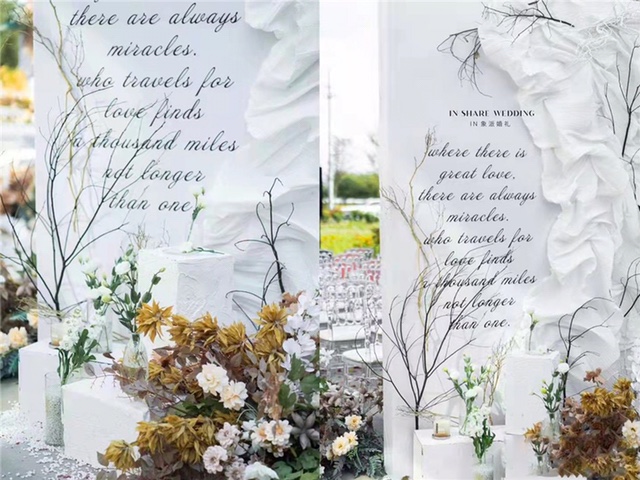 there are always
miracles.
who travels for
love finds
a thousand miles
not longer
than one.
IN SHARE WEDDING
IN 象派婚礼
where there is
great love.
there are always
miracles.
who travels for
love finds
a thousand miles
not longer
than one.